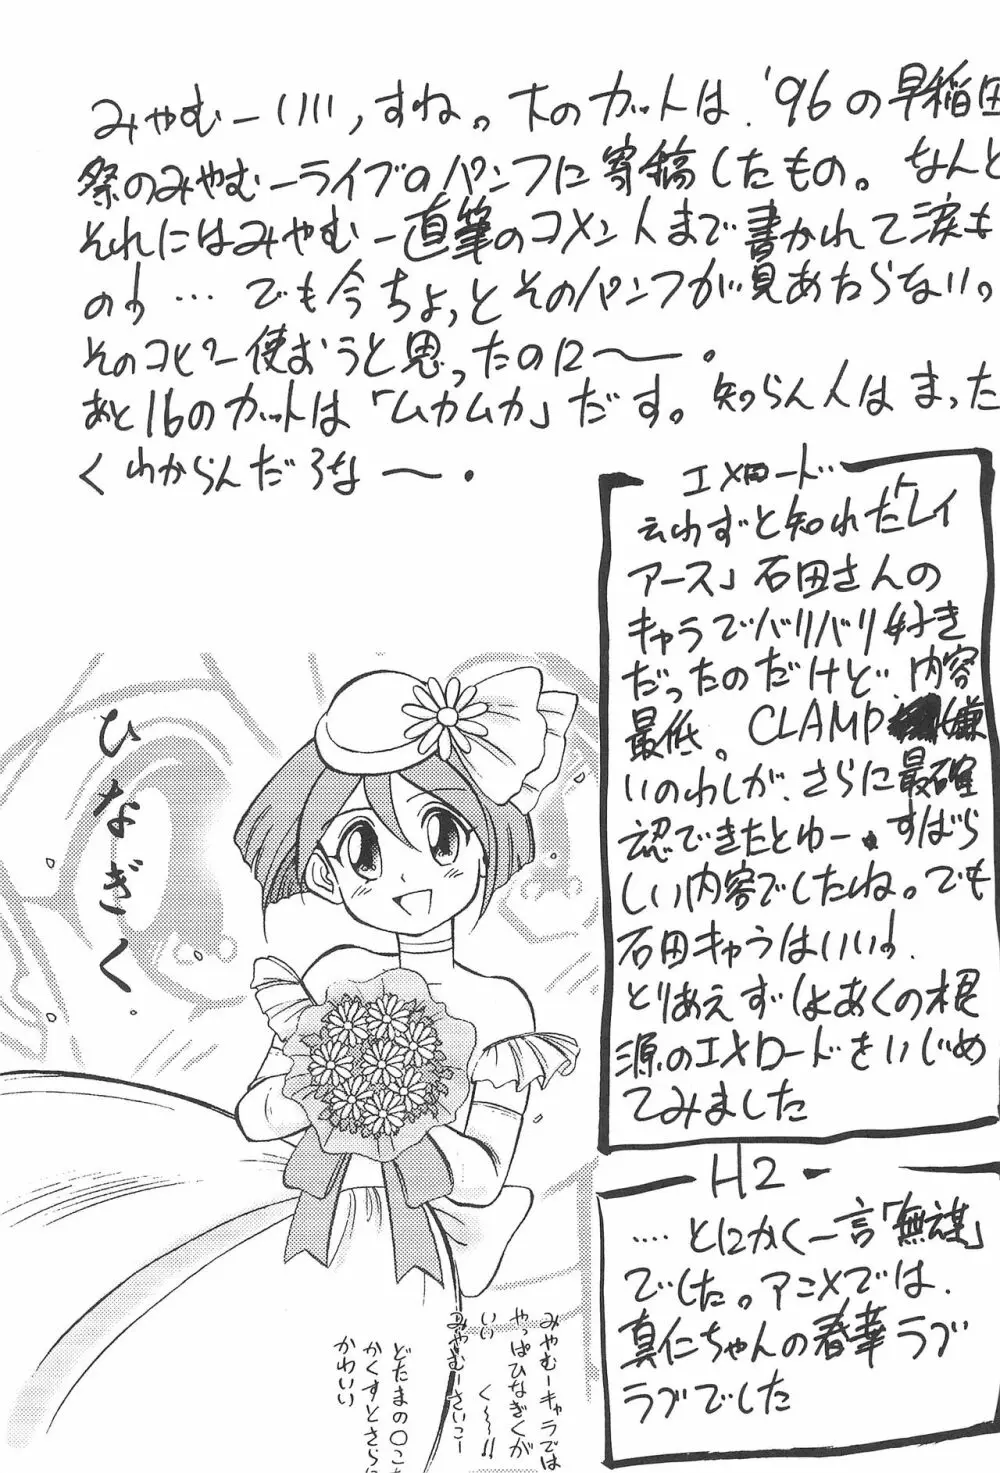 みやむーいい,すね。下のカットは、'96の早稲田
祭のみやむーライブのパンフに寄稿したもの。なんと
それにはみやむー直筆のコメントまで書かれて涙も
のよ…でも今ちょっとそのパンフが見あたらない。
そのコピー使おうと思ったのに〜。
あと16のカットは「ムカムカ」だす。知らん人はまった
くわからんだろな〜。
エメロード
云わずと知れた「レイ
アース」石田さんの
キャラでバリバリ好き
だったのだけど、内容
最低。CLAMP嫌
いのわしが、さらに最確
認できたとゆー。すばら
しい内容でしたね。でも
石田キャラはいいよ。
とりあえずはあくの根
源のエメロードをいじめ
てみました
H2
….とにかく一言「無謀」
でした。アニメでは、
真仁ちゃんの春華ラブ
ラブでした
ひなぎく
みやむーキャラでは
やっぱひなぎくが
いい く〜!!
みやむーさいこー
どたまの〇こち
かくすとさらに
かわいい